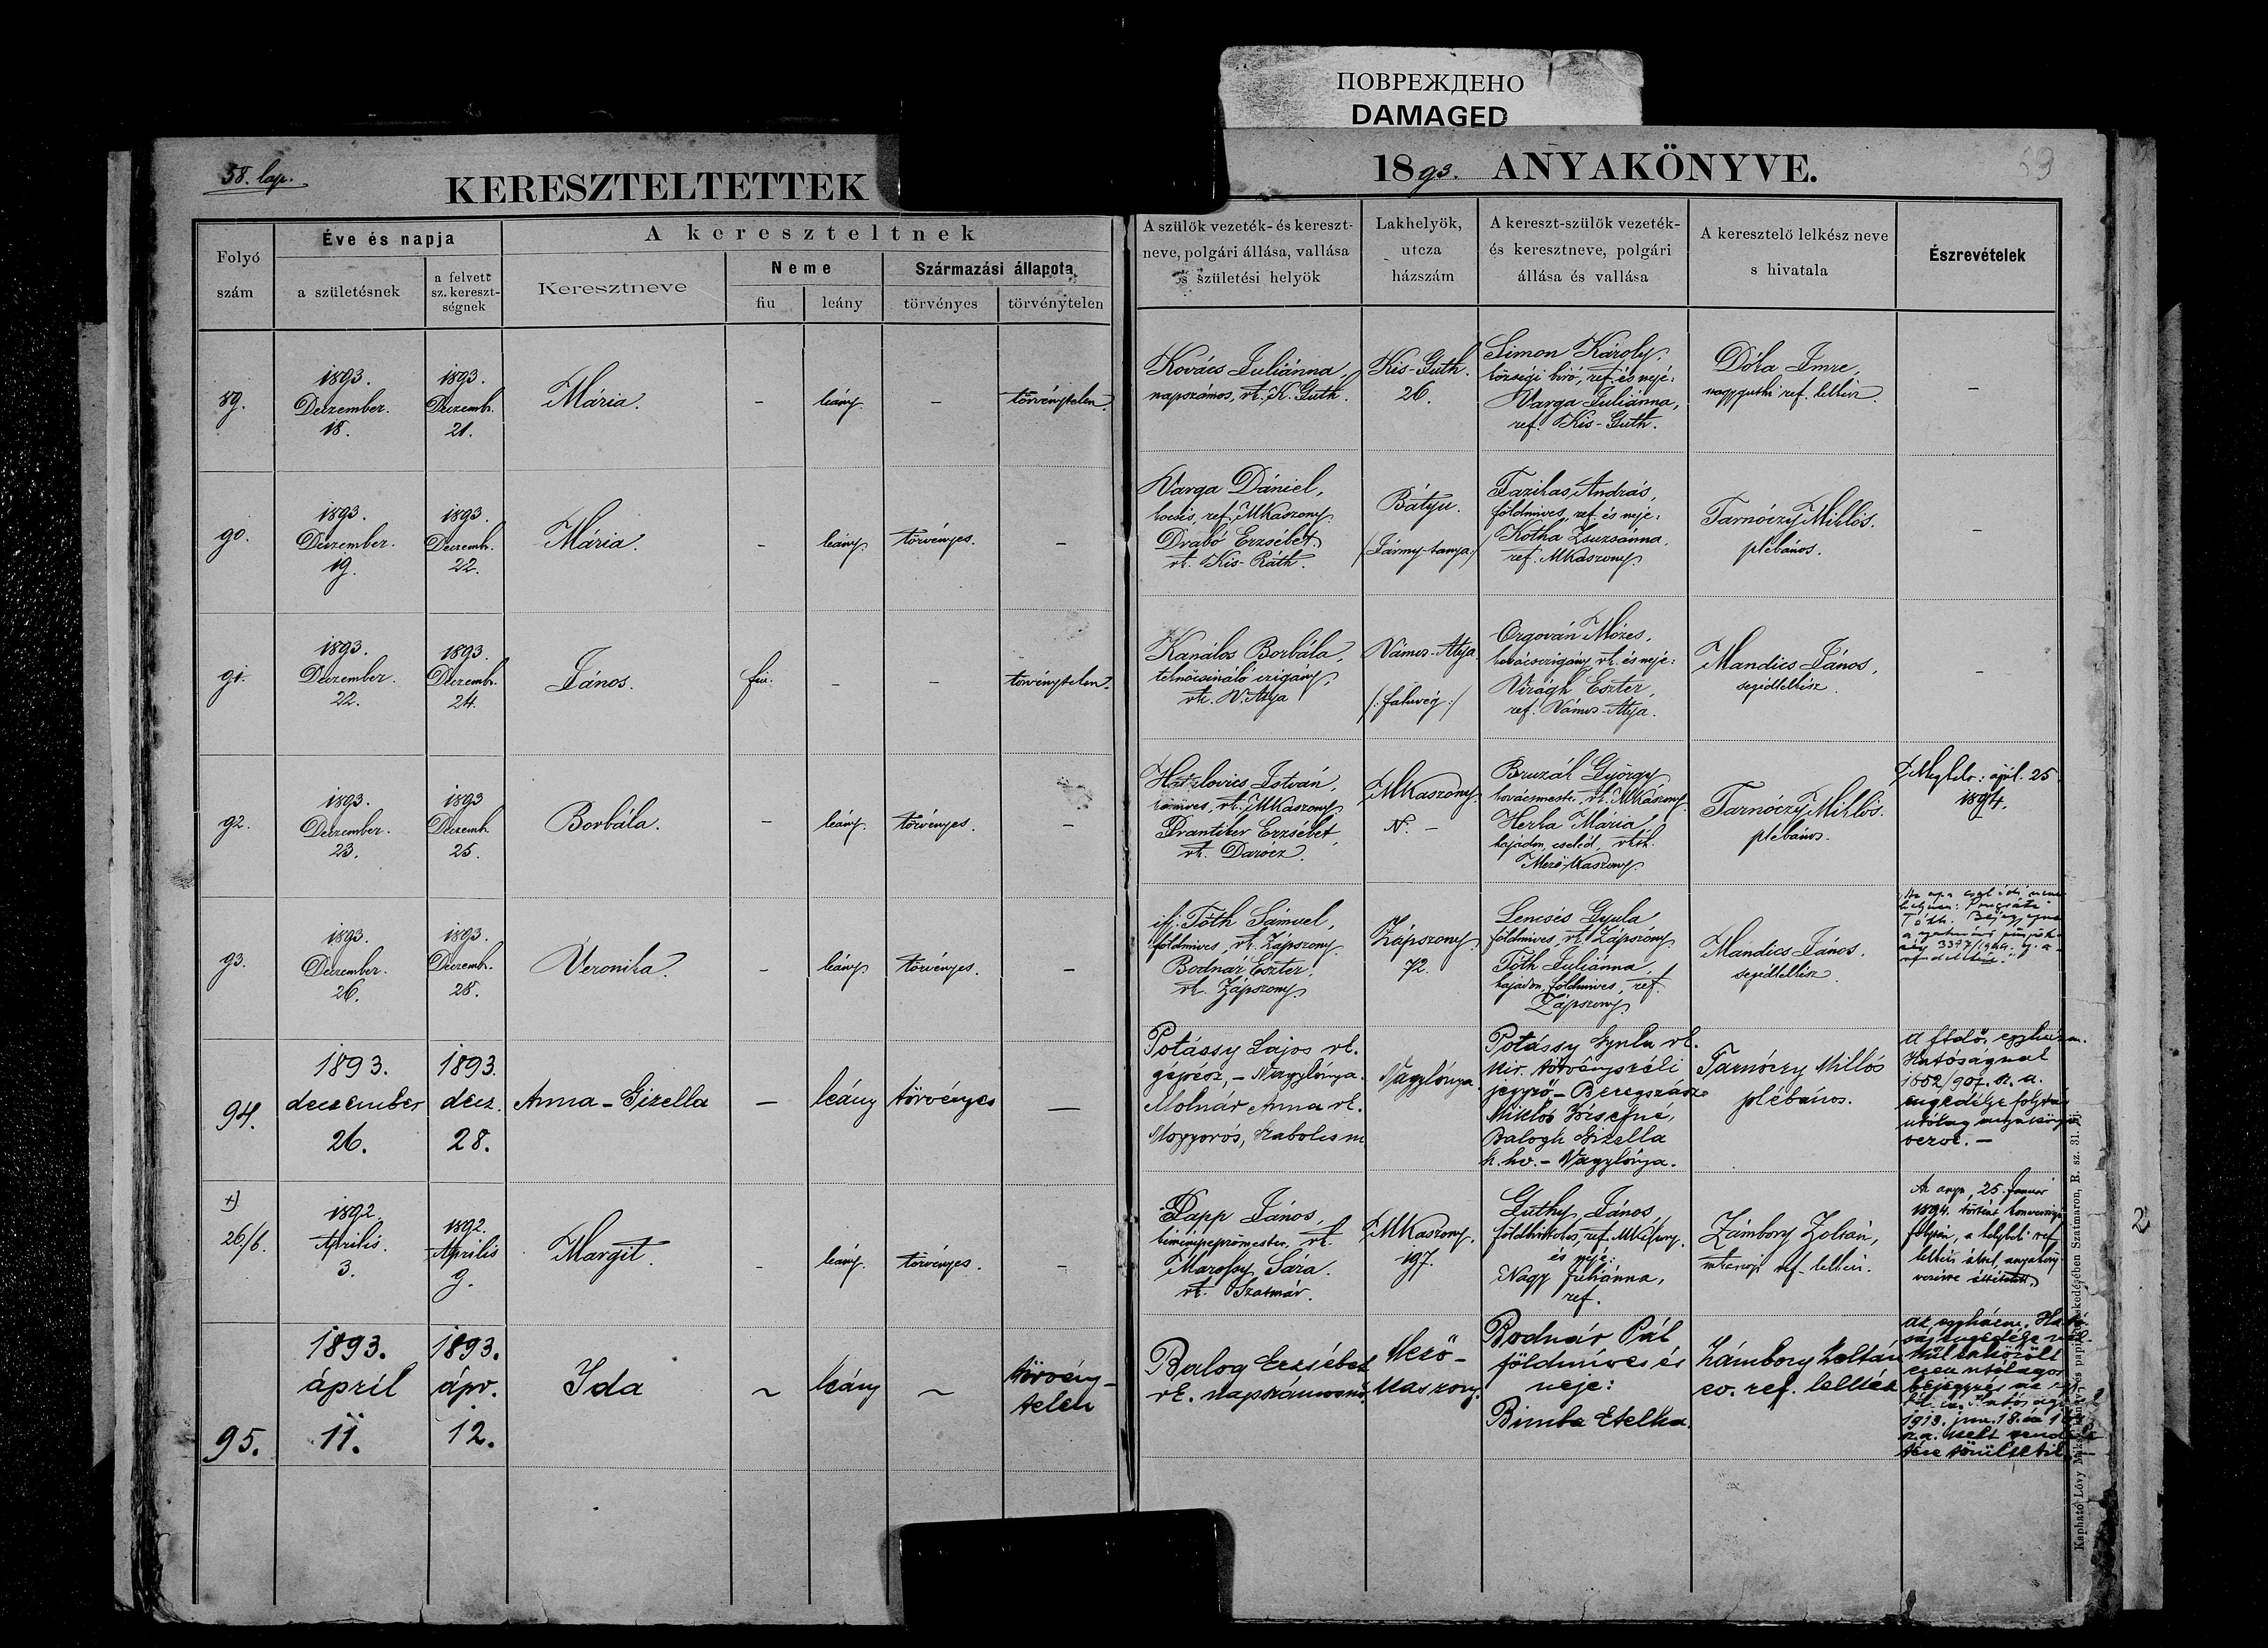 ПОВРЕЖДЕНО
DAMAGED
58. lap.
KERESZTELTETTEK
1893. ANYAKÖNYVE.
59
Folyó szám
Éve és napja
a születésnek
a felvett sz. kereszt-ségnek
A kereszteltnek
Keresztneve
Neme
fiu
leány
Származási állapota
törvényes
törvénytelen
A szülök vezeték- és kereszt-
neve, polgári állása, vallása
s születési helyök
Lakhelyök,
utcza
házszám
A kereszt-szülök vezeték-
és keresztneve, polgári
állása és vallása
A keresztelő lelkész neve
s hivatala
Észrevételek
89.
1893.
Deczember.
18.
1893.
Deczemb.
21.
Mária.
-
leány.
-
törvénytelen.
Kovács Juliánna,
napszámos, rk. K. Guth.
Kis-Guth.
26.
Simon Károly,
községi biró, ref. és neje:
Varga Juliánna,
ref. Kis-Guth.
Dóka Imre,
nagyguthi ref. lelkész.
-
90.
1893.
Deczember.
19.
1893.
Deczemb.
22.
Mária.
-
leány
törvényes.
-
Varga Dániel,
kocsis, ref. MKaszony.
Drabó Erzsébet.
rk. Kis-Ráth.
Bátyu.
(Jármy-tanya)
Fazikas András,
földmives, ref. és neje:
Kotha Zsuzsánna.
ref. MKaszony.
Tarnóczy Miklós.
plébános.
-
91.
1893.
Deczember.
22.
1893.
Deczemb.
24.
János.
fiu.
-
-
törvénytelen.
Kanálos Borbála,
teknőcsináló czigány,
rk. V. Atya
Vámos-Atya
(: faluvég :)
Orgován Mózes,
kovácsczigány rk. és neje:
Virágh Eszter,
ref. Vámos-Atya.
Mandics János,
segédlelkész.
-
92.
1893.
Deczember.
23.
1893
Deczemb.
25.
Borbála.
-
leány.
törvényes.
-
István,
rk. MKaszony
Prantiker Erzsébet,
rk. Darócz.
MKaszony.
N. -
Bruzál György
kovácsmester, rk. MKászony.
Herka Mária
hajadon, cseléd,
Mező-Kaszony.
Tarnóczy Miklós.
plébános.
ápril. 25
1894.
93.
1893.
Deczember.
26.
1893.
Deczemb.
28.
Veronika.
-
leány
törvényes.
-
ifj. Tóth Sámuel,
földmives, rk. Zápszony.
Bodnár Eszter.
rk. Zápszony.
Zápszony
72.
Lencsés Gyula
földmives, rk. Zápszony.
Tóth Juliánna,
hajadon, földmives, ref.
Zápszony.
Mandics János.
segédlelkész
Az apa családi
Tóth.
94.
1893.
deczember
26.
1893.
decz.
28.
Anna-Gizella
-
leány
törvényes
-
Potássy Lajos rk.
gépész, - Nagylónya.
Molnár Anna rk.
Mogyorós, Szabolcs m
Nagylónya
Potássy Gyula rk.
kir. törvényszéki
jegyző - Beregszász
Miklós Józsefné,
Balogh Gizella
h. hv. - Nagylónya.
Tarnóczy Miklós
plébános.
Hatóságnak
1652/907. sz. a.
engedélye folytán
utólag
+)
26/b.
1892.
Aprilis.
3.
1892.
Aprilis
9.
Margit.
-
leány.
törvényes.
-
Papp János,
kéményseprőmester, rk.
Marossy Sára.
rk. Szatmár.
MKaszony.
197.
Guthy János,
földbirtokos, ref. MKaszony.
és neje:
Nagy Juliánna,
ref.
Zámbory Zoltán,
ref. lelkész.
Az anya, 25. Január
1894. történt
folytán, a helybeli ref.
lelkész által,
95.
1893.
ápril
11.
1893.
ápr.
12.
Ida
~
leány
~
törvény-
telen
Balog Erzsébet
rk. napszámosnő.
Mező-
Kaszony.
Bodnár Pál
földmíves és
neje:
Bimba Etelka.
Zámbory Zoltán
ev. ref. lelkész
utólagos
bejegyzés
1913. jun. 18.
2